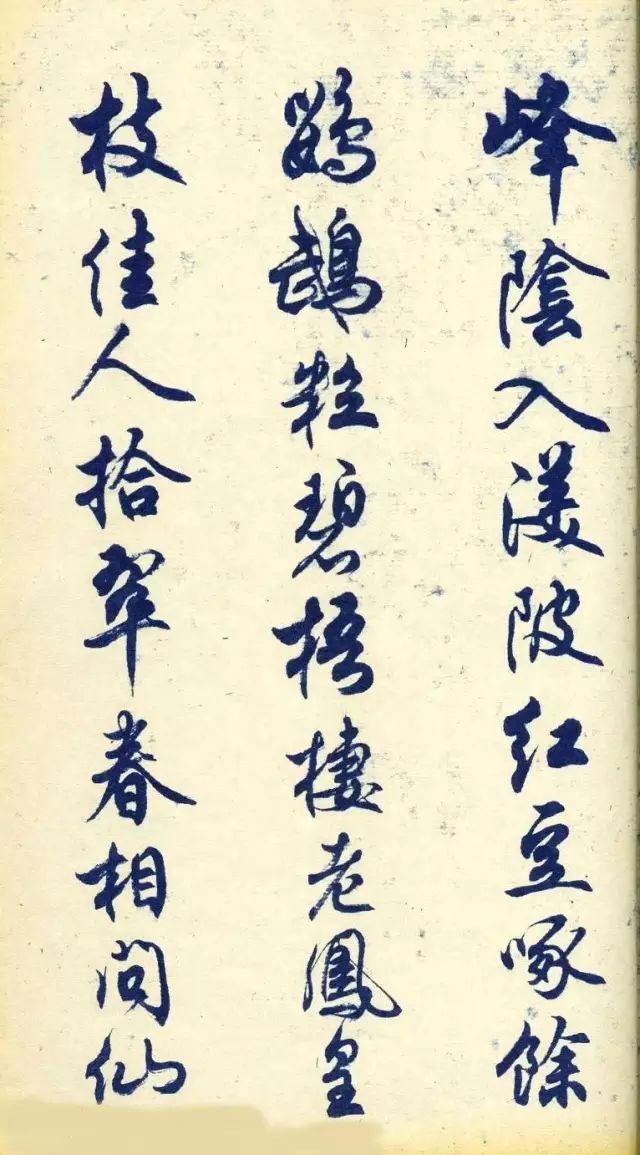 峰陰入渼陂红豆啄餘
鸚鵡粒碧梧棲老鳳皇
枝佳人拾翠春相问仙